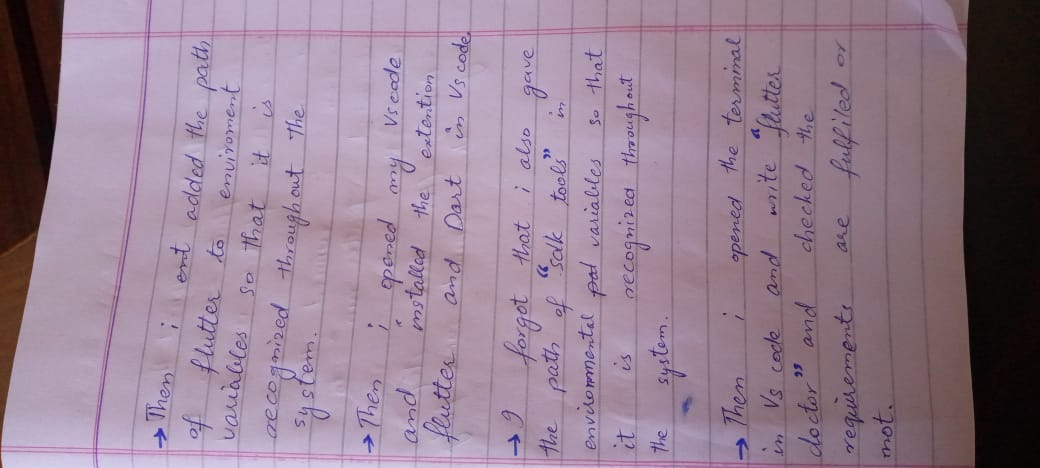 → Then i ent added the path
of flutter to enviroment
variables so that it is
recognized throughout the
system.
→ Then i opened my Vs code
and installed the extention
flutter and Dart in Vs code.
→ I forgot that i also gave
the path of "sdk tools" in
enviornmental pad variables so that
it is recognized throughout
the system.
→ Then i opened the terminal
in Vs code and write "flutter
doctor" and checked the
requirements are fulfiled or
not.